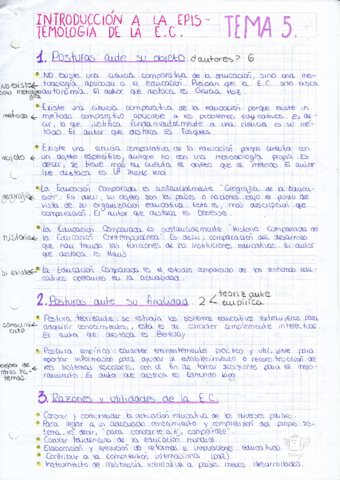 INTRODUCCIÓN A LA EPIS-
TEMOLOGÍA DE LA E.C. TEMA 5.
1. Posturas ante su objeto ¿autores? 6
No existe una ciencia comparativa de la educación, sino una me-
todología aplicada a la educación. Piensan que la E.C. no busca
autonomía. El autor que destaca es García Hoz.
No existe
solo metodo
logía
Existe una ciencia comparativa de la educación porque existe un
metodo comparativo aplicable a los problemas educativos. Es de-
cir, lo que justifica fundamentalmente a una ciencia es su mé-
todo. El autor que destaca es Tusquets.
metodo
Existe una ciencia comparativa de la educación porque cuenta con
un objeto específico, aunque no con una metodología propia. Es
decir, se tiene más en cuenta el objeto que el método. El autor
que destaca es
objeto
La Educación Comparada es sustancialmente "Geografía de la Educa-
ción". Es decir, su objeto son los países o naciones bajo el punto de
vista de su organización educativa. Esto es, más descripción que
comparación. El autor que destaca es
geografía
La Educación Comparada es sustancialmente "Historia Comparada de
la Educación Contemporánea". Es decir, comparación del desarrollo
que han tenido las funciones de las instituciones educativas. El autor
que destaca es Hans
historia
La Educación Comparada es el estudio comparado de los sistemas edu-
cativos operantes en la actualidad.
si existe
2. Posturas ante su finalidad 2 teorizante
empírica
Postura teorizante: se estudia los sistemas educativos extranjeros para
adquirir conocimientos, esta es de carácter simplemente intelectual.
El autor que destaca es Bereday
conocimi
ento
Postura empírica: carácter eminentemente práctico y útil, sirve para
aportar información para ayudar al establecimiento o reconstrucción de
los sistemas escolares, con el fin de tomar decisiones para el mejo-
ramiento. El autor que destaca es Edmund King
mejora de
otros sis-
temas
3. Razones y utilidades de la E.C.
Conocer y comprender la actuación educativa de los diversos países.
Para llegar a un adecuado conocimiento y comprensión del propio sis-
tema, es decir, "para conocerte a ti, compárate".
Conocer tendencias de la educación mundial
Elaboración y ejecución de reformas e innovaciones educativas.
Contribuir a la comprensión internacional (paz)
Instrumento de asistencia educativa a países menos desarrollados.